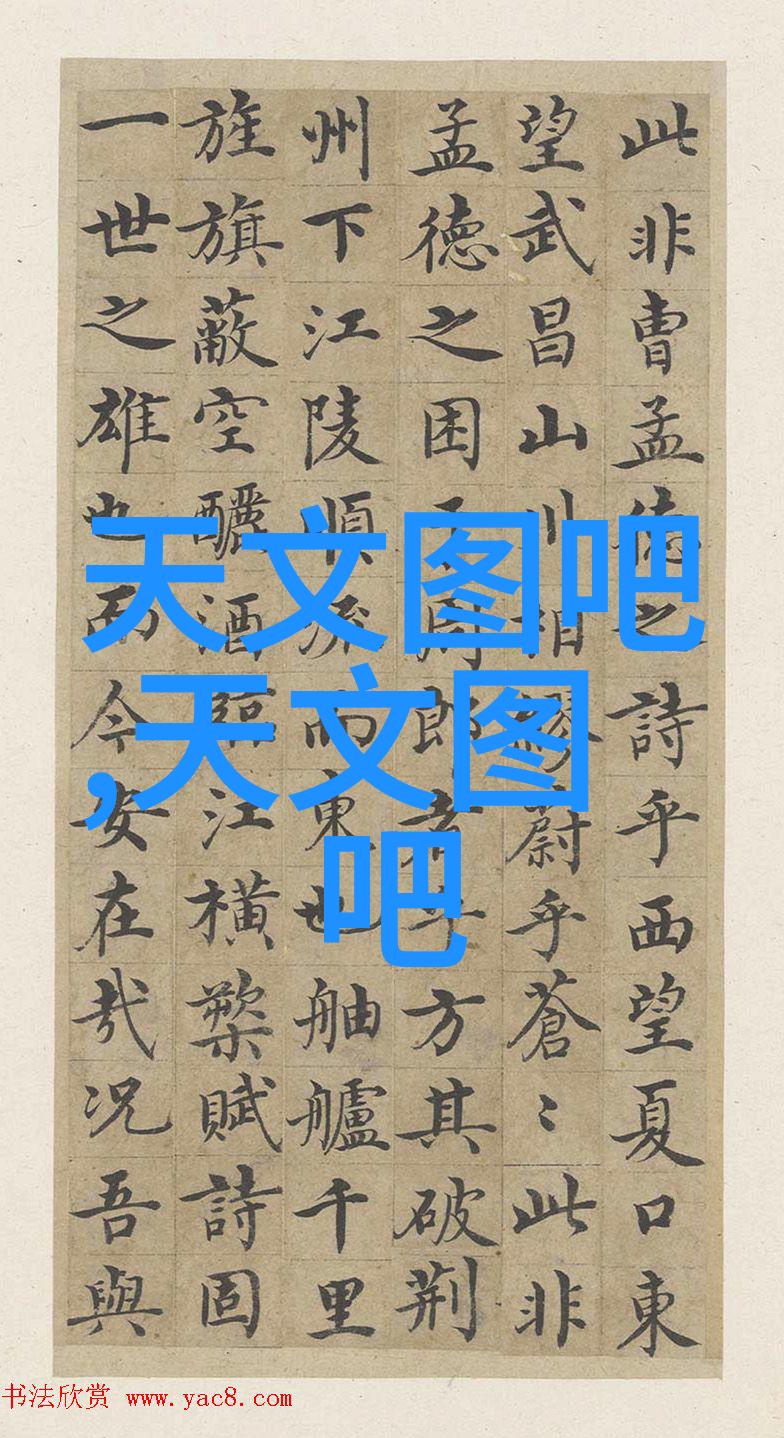 此非曹孟德之詩乎西望夏口東
望武昌山川相繆蔚乎蒼〻此非
孟德之困于周郎者乎方其破荊
州下江陵順流而東也舳艫千里
旌旗蔽空釃酒臨江橫槊賦詩固
一世之雄也而今安在哉况吾與
天文图吧
,天文图
吧
书法欣赏 www.yac8.com